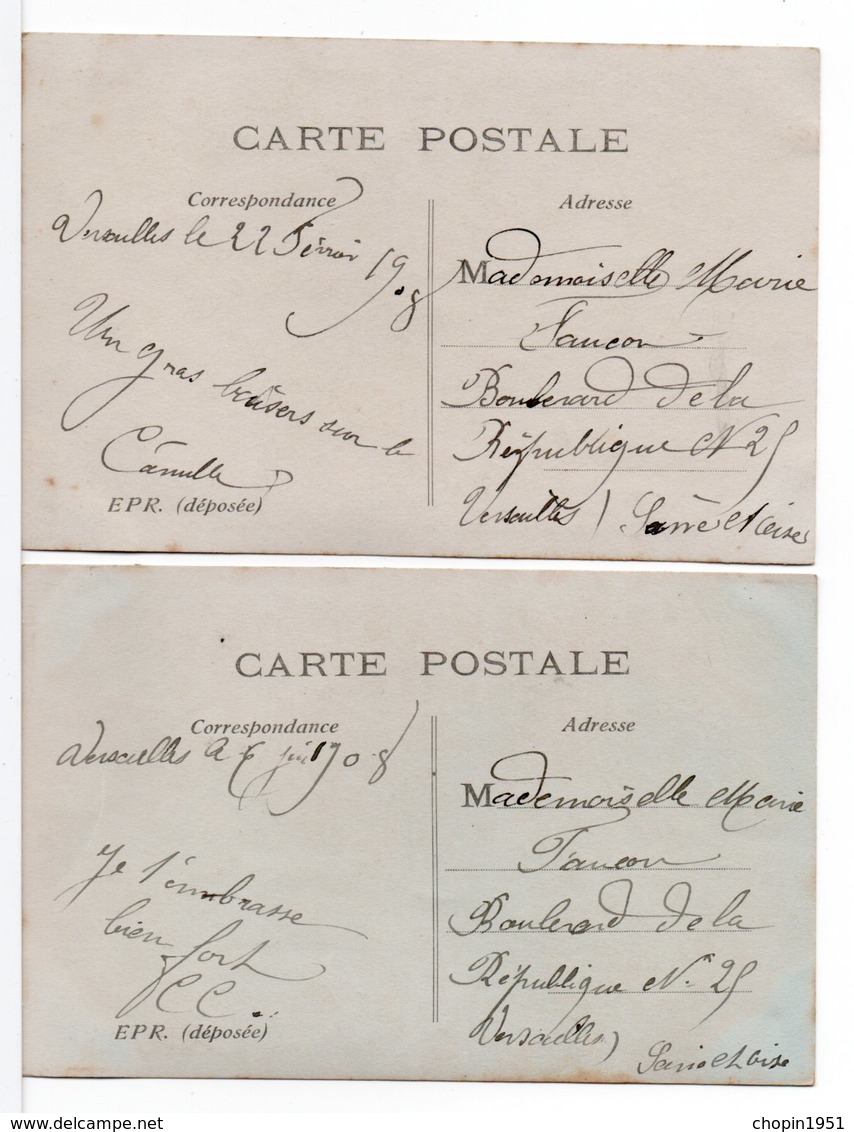 CARTE POSTALE
Correspondance
Adresse
Versailles le 22 Février 1908
Un gras baisers sur le
Camille
EPR. (déposée)
Mademoiselle Marie
Faucon
Boulevard de la
République N 25
Versailles) Seine et Oise
CARTE POSTALE
Correspondance
Adresse
Versailles le 6 1908
Je t'embrasse
bien fort
CC
EPR. (déposée)
Mademoiselle Marie
Faucon
Boulevard de la
République No 25
Versailles)
Seine et Oise
chopin1951